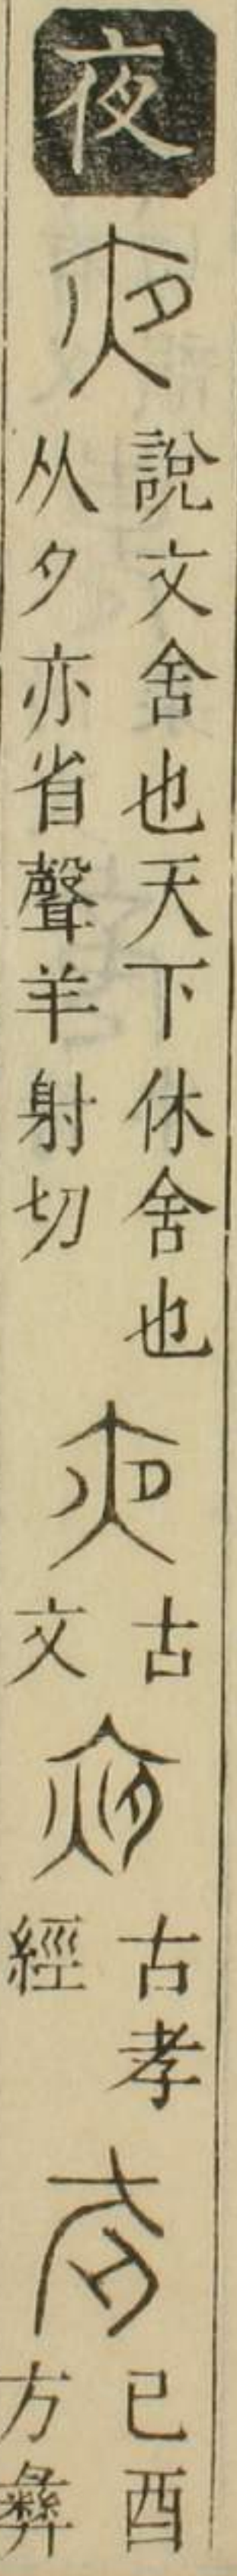 夜
說文舍也天下休舍也
从夕亦省聲羊射切
古
文
古孝
經
已酉
方彝